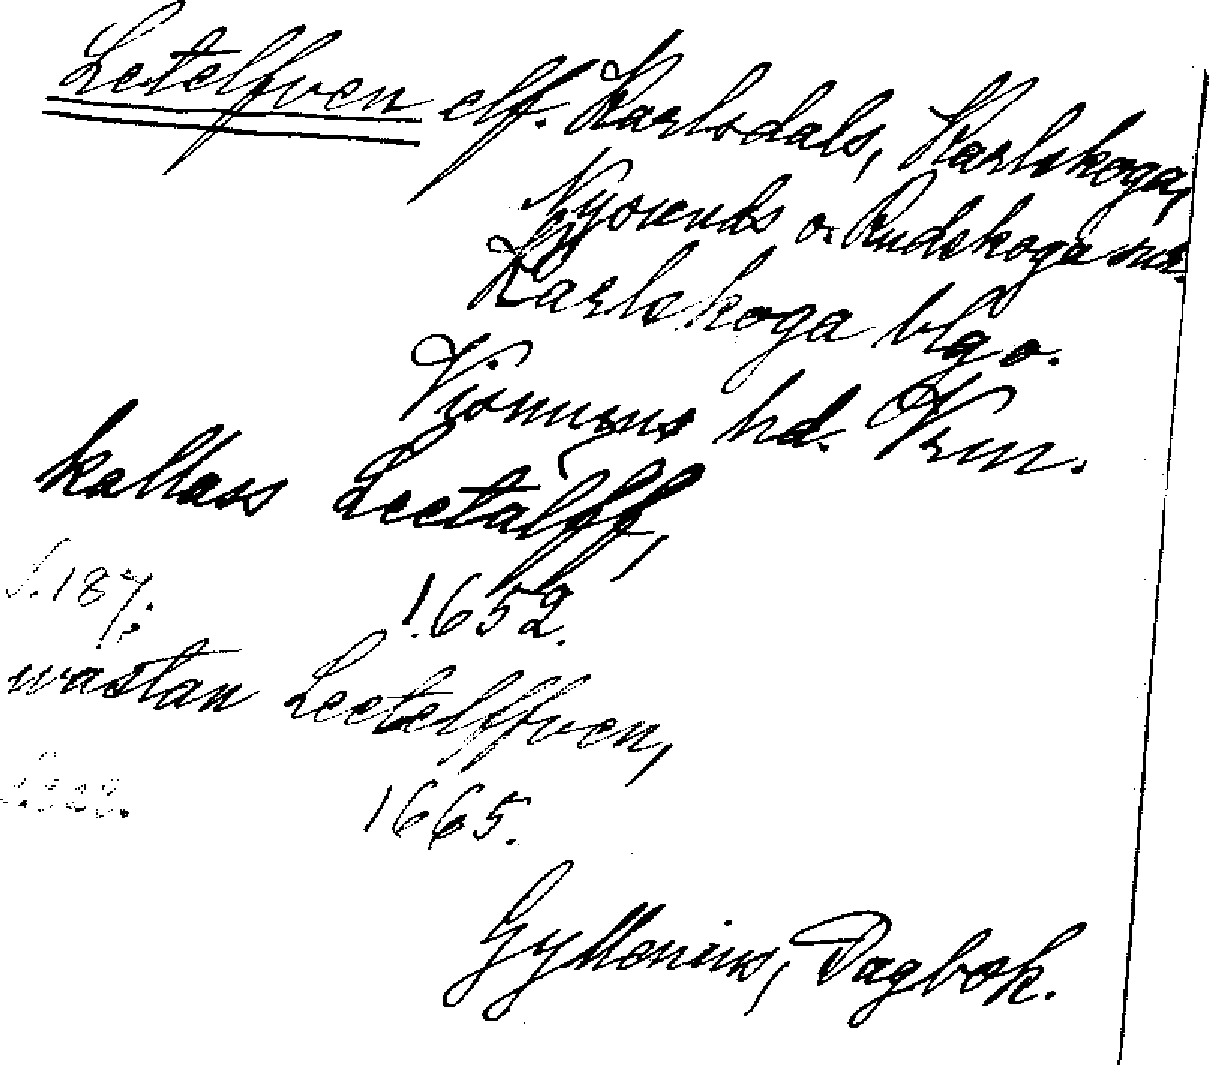 Letelfven elf. Karlsdals, Karlskoga,
Nysunds o. Rudskoga snr.
Karlskoga blg o.
Visnums hd. Vrm.
kallass Leetälff,
S. 187. 1652.
wästan Leetelffven,
1665.
Gyllenius, Dagbok.